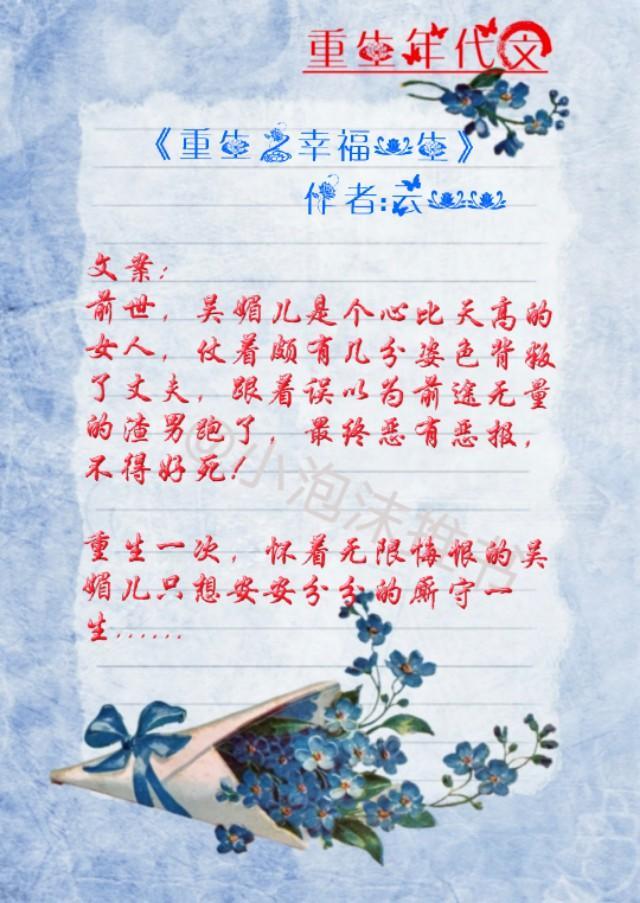 重生年代文
《重生之幸福一生》
作者:云一一
文案:
前世，吴媚儿是个心比天高的
女人，仗着颇有几分姿色背叛
了丈夫，跟着误以为前途无量
的渣男跑了，最终恶有恶报，
不得好死!
@小泡沫推书
重生一次，怀着无限悔恨的吴
媚儿只想安安分分的厮守一
生......